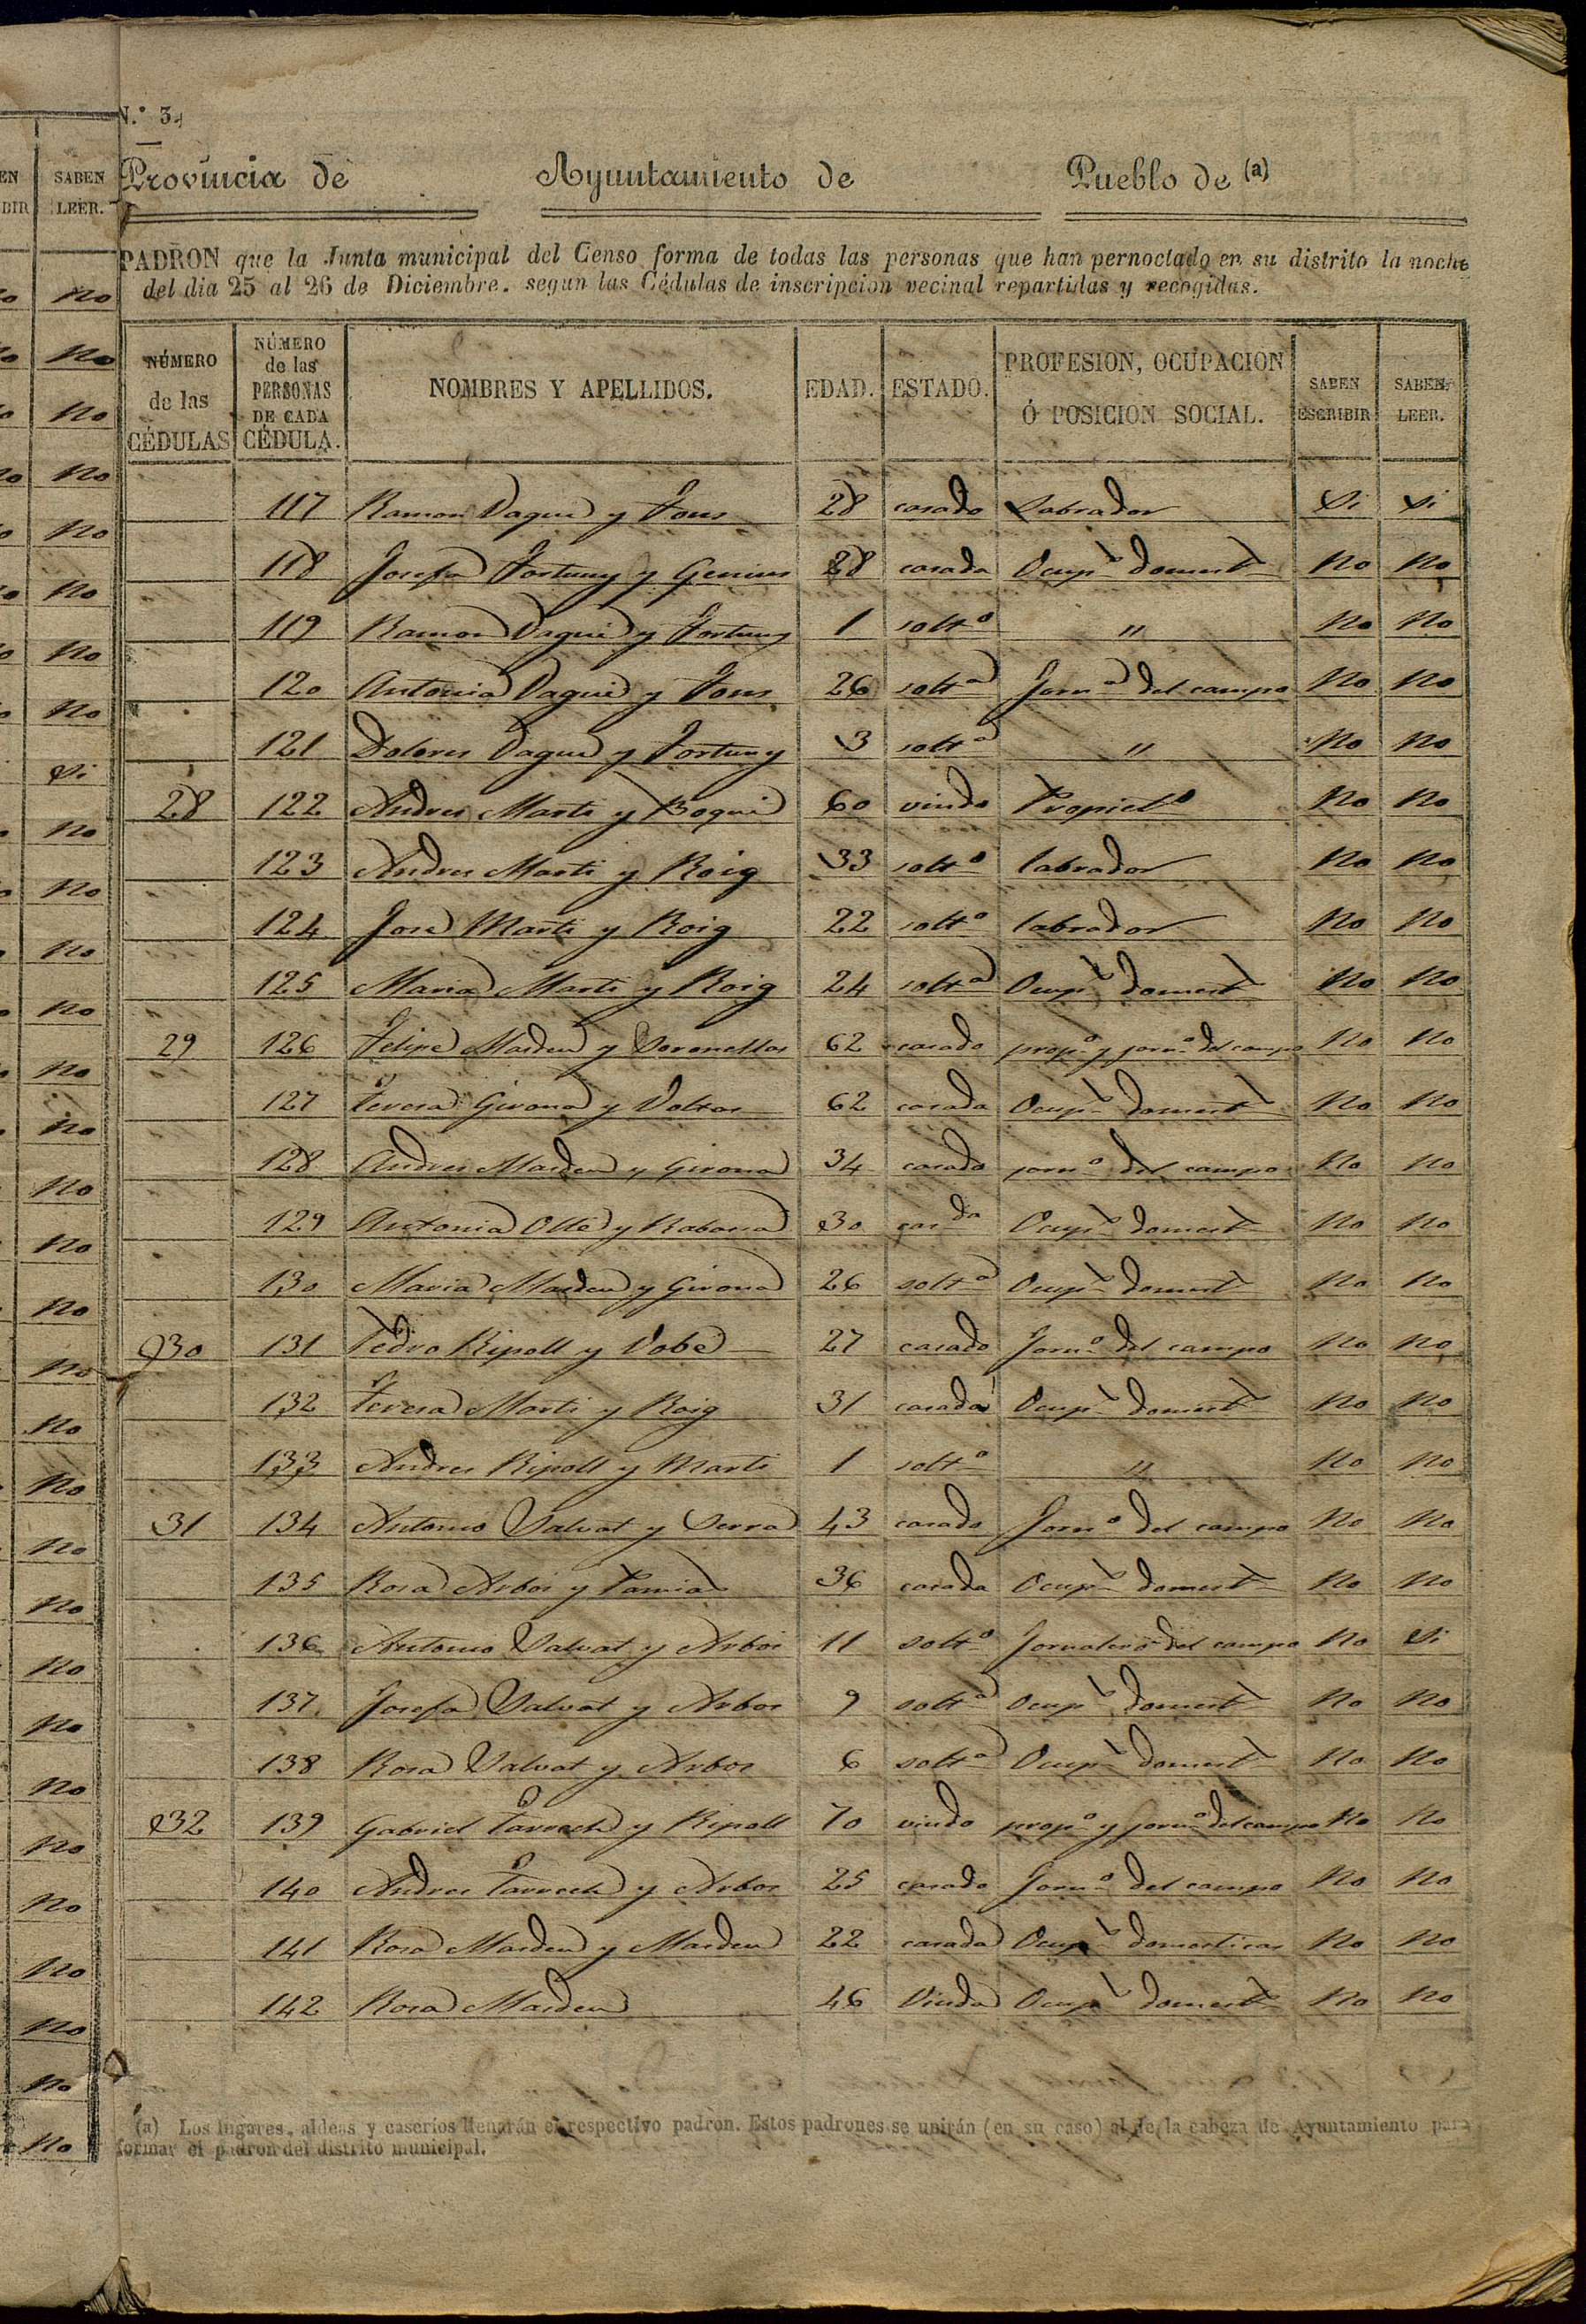 N.º 3.
Provincia de Ayuntamiento de Pueblo de (a)
PADRON que la Junta municipal del Censo forma de todas las personas que han pernoctado en su distrito la noche
del dia 25 al 26 de Diciembre. segun las Cédulas de inscripcion vecinal repartidas y recogidas.
NÚMERO de las CÉDULAS NÚMERO de las PERSONAS DE CADA CÉDULA. NOMBRES Y APELLIDOS. EDAD. ESTADO. PROFESION, OCUPACION Ó POSICION SOCIAL. SABEN ESCRIBIR SABEN LEER.
117 Ramon Vaqué y Fons 28 casado Labrador Si Si
118 Josefa Fortuny y Genius 28 casada Ocup.s domest.s No No
119 Ramon Vaqué y Fortuny 1 solt.o " No No
120 Antonia Vaqué y Fons 26 solt.a Jorn.a del campo No No
121 Dolores Vaqué y Fortuny 3 solt.a " No No
28 122 Andres Marti y Boqué 60 viudo Propiet.o No No
123 Andres Marti y Roig 33 solt.o labrador No No
124 José Marti y Roig 22 solt.o labrador No No
125 Maria Marti y Roig 24 solt.a Ocup.s domest.s No No
29 126 Felipe Masdeu y Soronellas 62 casado prop.o y jorn.o del campo No No
127 Teresa Girona y Voltas 62 casada Ocup.s domest.s No No
128 Andres Masdeu y Girona 34 casado jorn.o del campo No No
129 Antonia Ollé y Rabasa 30 cas.da Ocup.s domest.s No No
130 Maria Masdeu y Girona 26 solt.a Ocup.s domest.s No No
30 131 Pedro Ripoll y Vobé 27 casado Jorn.o del campo No No
132 Teresa Marti y Roig 31 casada Ocup.s domest.s No No
133 Andres Ripoll y Marti 1 solt.o " No No
31 134 Antonio Salvat y Serra 43 casado Jorn.o del campo No No
135 Rosa Arbós y Pamias 36 casada Ocup.s domest.s No No
136 Antonio Salvat y Arbós 11 solt.o Jornalero del campo No Si
137 Josefa Salvat y Arbos 9 solt.a Ocup.s domest.s No No
138 Rosa Salvat y Arbos 6 solt.a Ocup.s domest.s No No
32 139 Gabriel Tarrech y Ripoll 70 viudo prop.o y jorn.o del campo No No
140 Andres Tarrech y Arbos 25 casado Jorn.o del campo No No
141 Rosa Masdeu y Masdeu 22 casada Ocup.s domesticas No No
142 Rosa Masdeu 46 Viuda Ocup.s domest.s No No
(a) Los lugares, aldeas y caseríos llenarán el respectivo padron. Estos padrones se unirán (en su caso) al de la cabeza de Ayuntamiento para
formar el padron del distrito municipal.